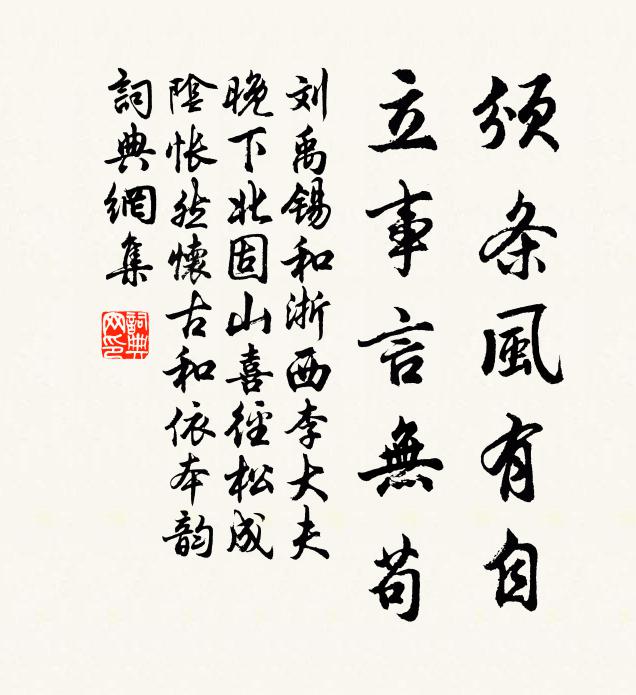 颁条風有自
立事言無苟
刘禹锡和浙西李大夫
晚下北固山喜徑松成
陰悵然懷古和依本韵
詞典網集
詞典
网印